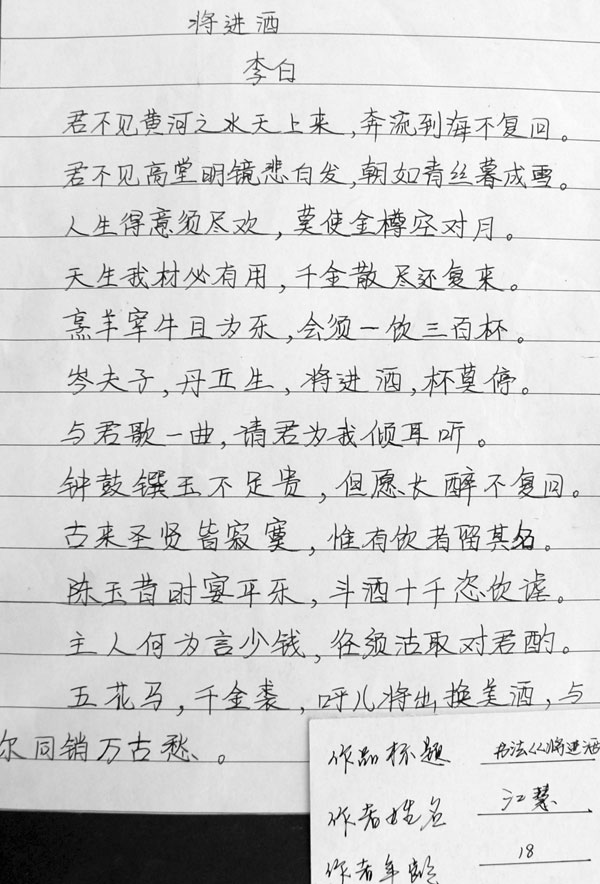 将进酒
李白
君不见黄河之水天上来,奔流到海不复回。
君不见高堂明镜悲白发,朝如青丝暮成雪。
人生得意须尽欢,莫使金樽空对月。
天生我材必有用,千金散尽还复来。
烹羊宰牛且为乐,会须一饮三百杯。
岑夫子,丹丘生,将进酒,杯莫停。
与君歌一曲,请君为我倾耳听。
钟鼓馔玉不足贵,但愿长醉不复回。
古来圣贤皆寂寞,惟有饮者留其名。
陈玉昔时宴平乐,斗酒十千恣饮谑。
主人何为言少钱,径须沽取对君酌。
五花马,千金裘,呼儿将出换美酒,与
尔同销万古愁。
作品标题 书法《将进酒
作者姓名 江慧
作者年龄 18